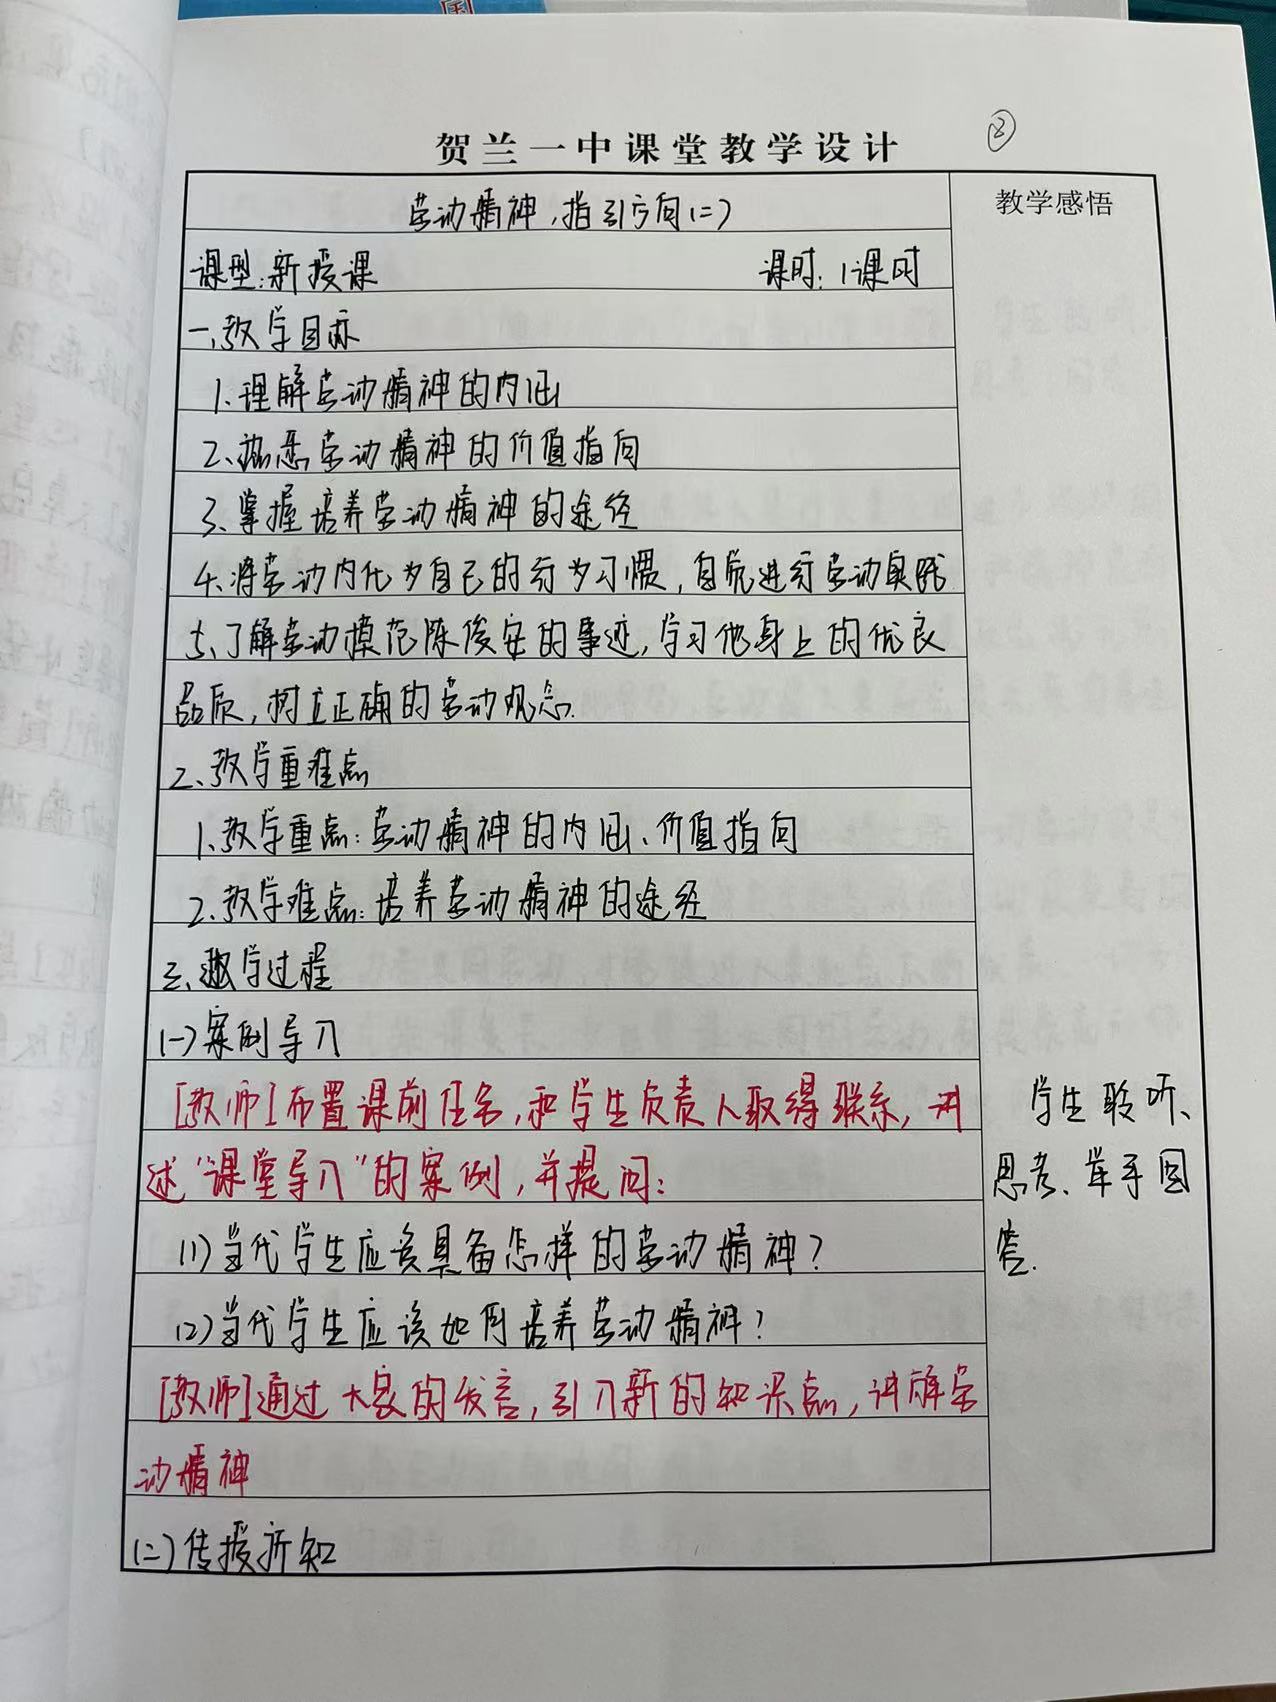 国
②
贺兰一中课堂教学设计
劳动精神,指引方向(二)
教学感悟
课型:新授课 课时:1课时
一、教学目标
1.理解劳动精神的内涵
2、熟悉劳动精神的价值指向
3、掌握培养劳动精神的途径
4.将劳动内化为自己的行为习惯,自觉进行劳动实践
5、了解劳动模范陈俊安的事迹,学习他身上的优良
品质,树立正确的劳动观念.
二、教学重难点
1、教学重点:劳动精神的内涵、价值指向
2、教学难点:培养劳动精神的途径
三、教学过程
(一)案例导入
[教师]布置课前任务,和学生负责人取得联系,讲
述“课堂导入”的案例,并提问:
(1)当代学生应该具备怎样的劳动精神?
(2)当代学生应该如何培养劳动精神?
[教师]通过大家的发言,引入新的知识点,讲解劳
动精神
(二)传授新知
学生聆听、
思考、举手回
答.